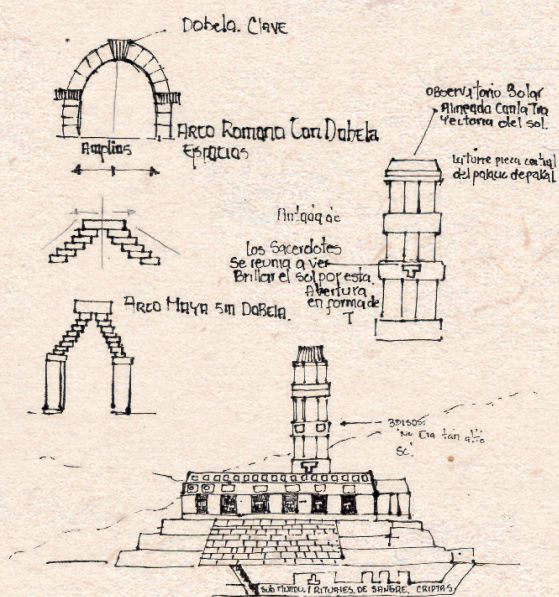 Dobela. Clave
Arco Romano Con Dobela
Amplios
Espacios
Observatorio Solar
Alineada Con la Tra
Yectoria del sol.
La torre pieza central
del palacio de pakal
Los Sacerdotes
Se reunia a ver
Brillar el sol por esta.
Abertura
en forma de
T
Arco Maya sin Dobela.
3 Pisos:
"No Era tan alto
Sub mundo / Rituales de sangre, criptas